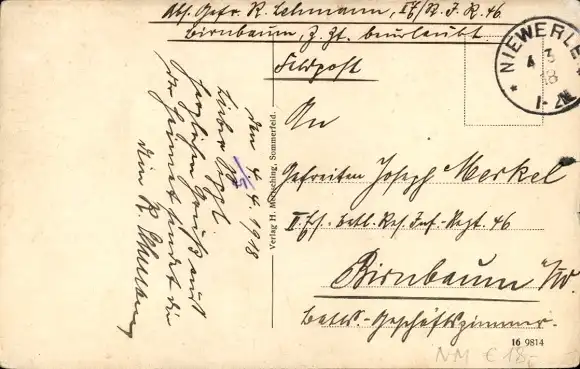 Abs. Gefr. R. Lehmann, II/R. J. R. 46.
Birnbaum, z. Zt. beurlaubt.
Feldpost
NIEWERLE
4 3
18
1-2N
An
Gefreiten Joseph Merkel
II. Ers. Batl. Res. Inf.-Regt. 46
Birnbaum /W.
Batls.-Geschäftszimmer.
den 4. 4. 1918
Lieber
Herzlichen Gruß aus
der Heimat sendet dir
dein R. Lehmann
Verlag H. Mertsching, Sommerfeld.
16 9814
NM € 18,-